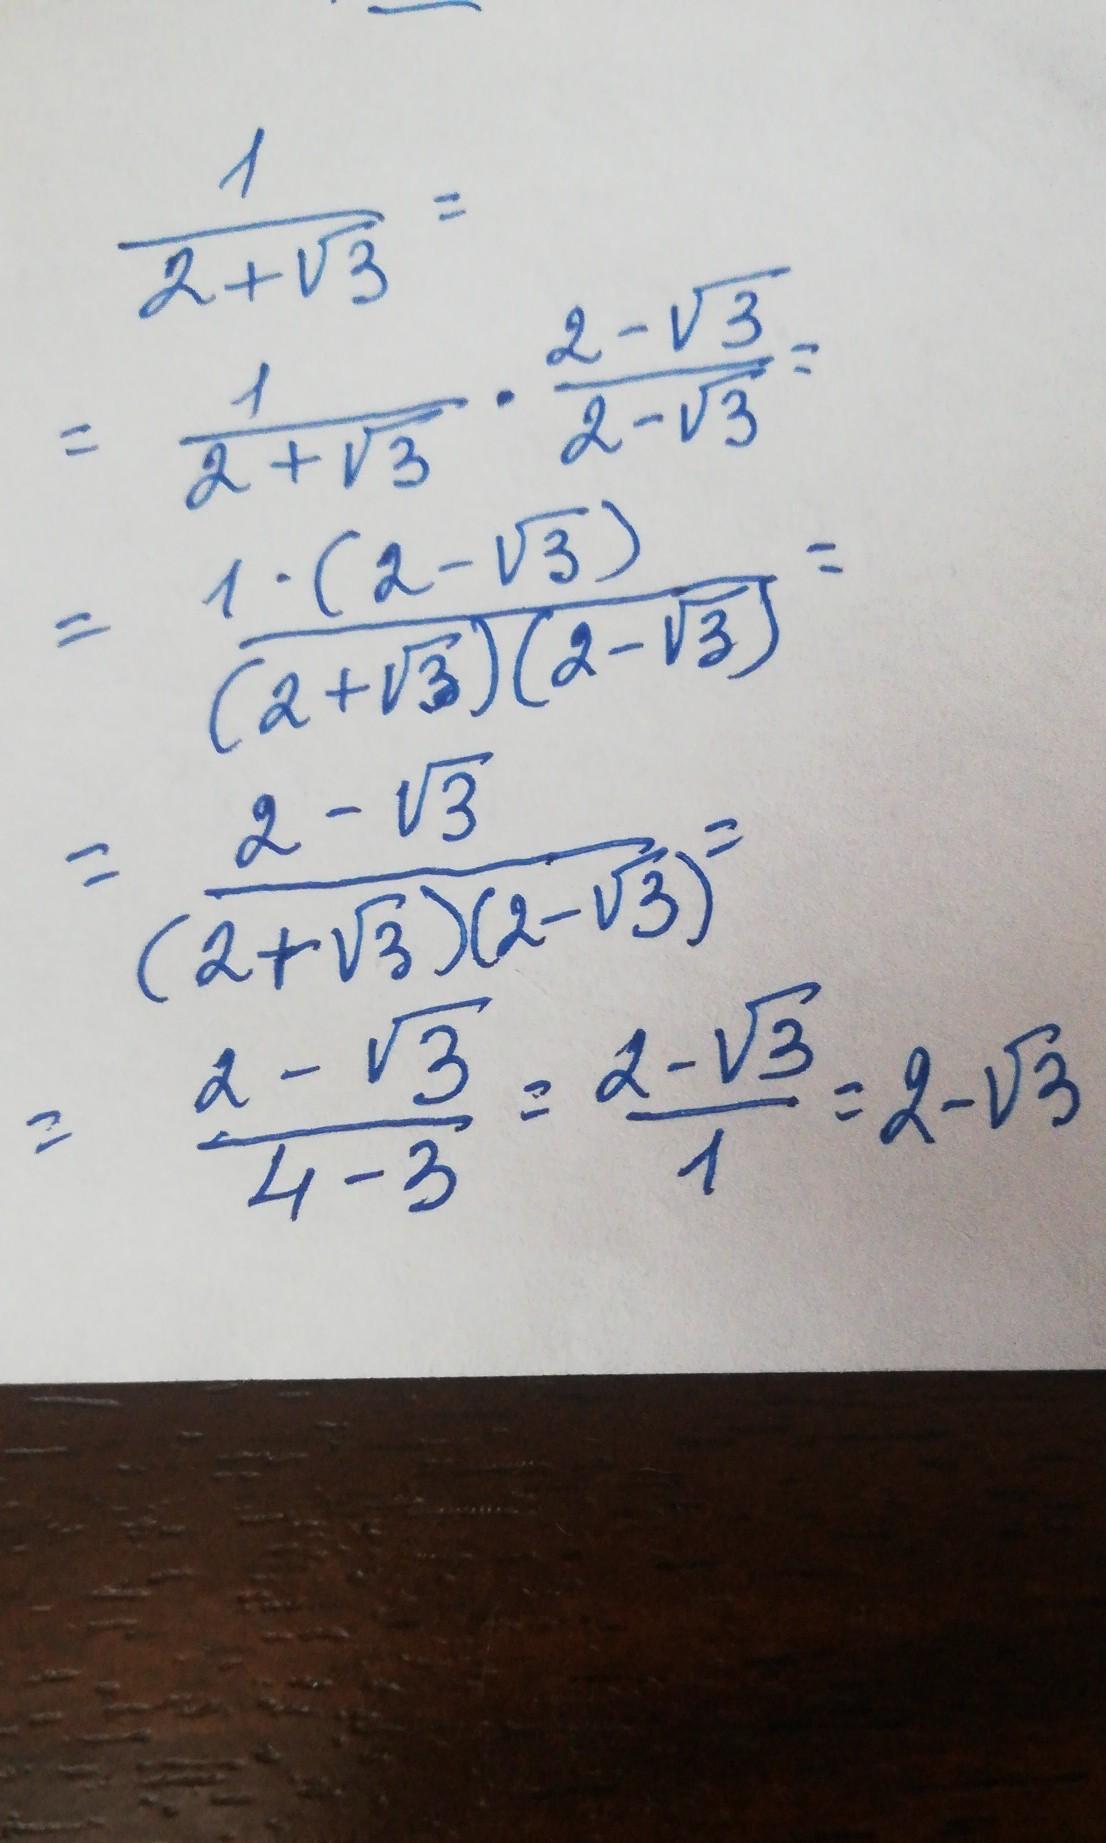 1/(2+√3) =
= 1/(2+√3) · (2-√3)/(2-√3) =
= 1·(2-√3)/((2+√3)(2-√3)) =
= (2-√3)/((2+√3)(2-√3)) =
= (2-√3)/(4-3) = (2-√3)/1 = 2-√3